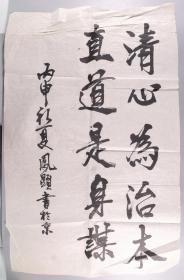 清心為治本
直道是身謀
丙申初夏鳳顯書於京